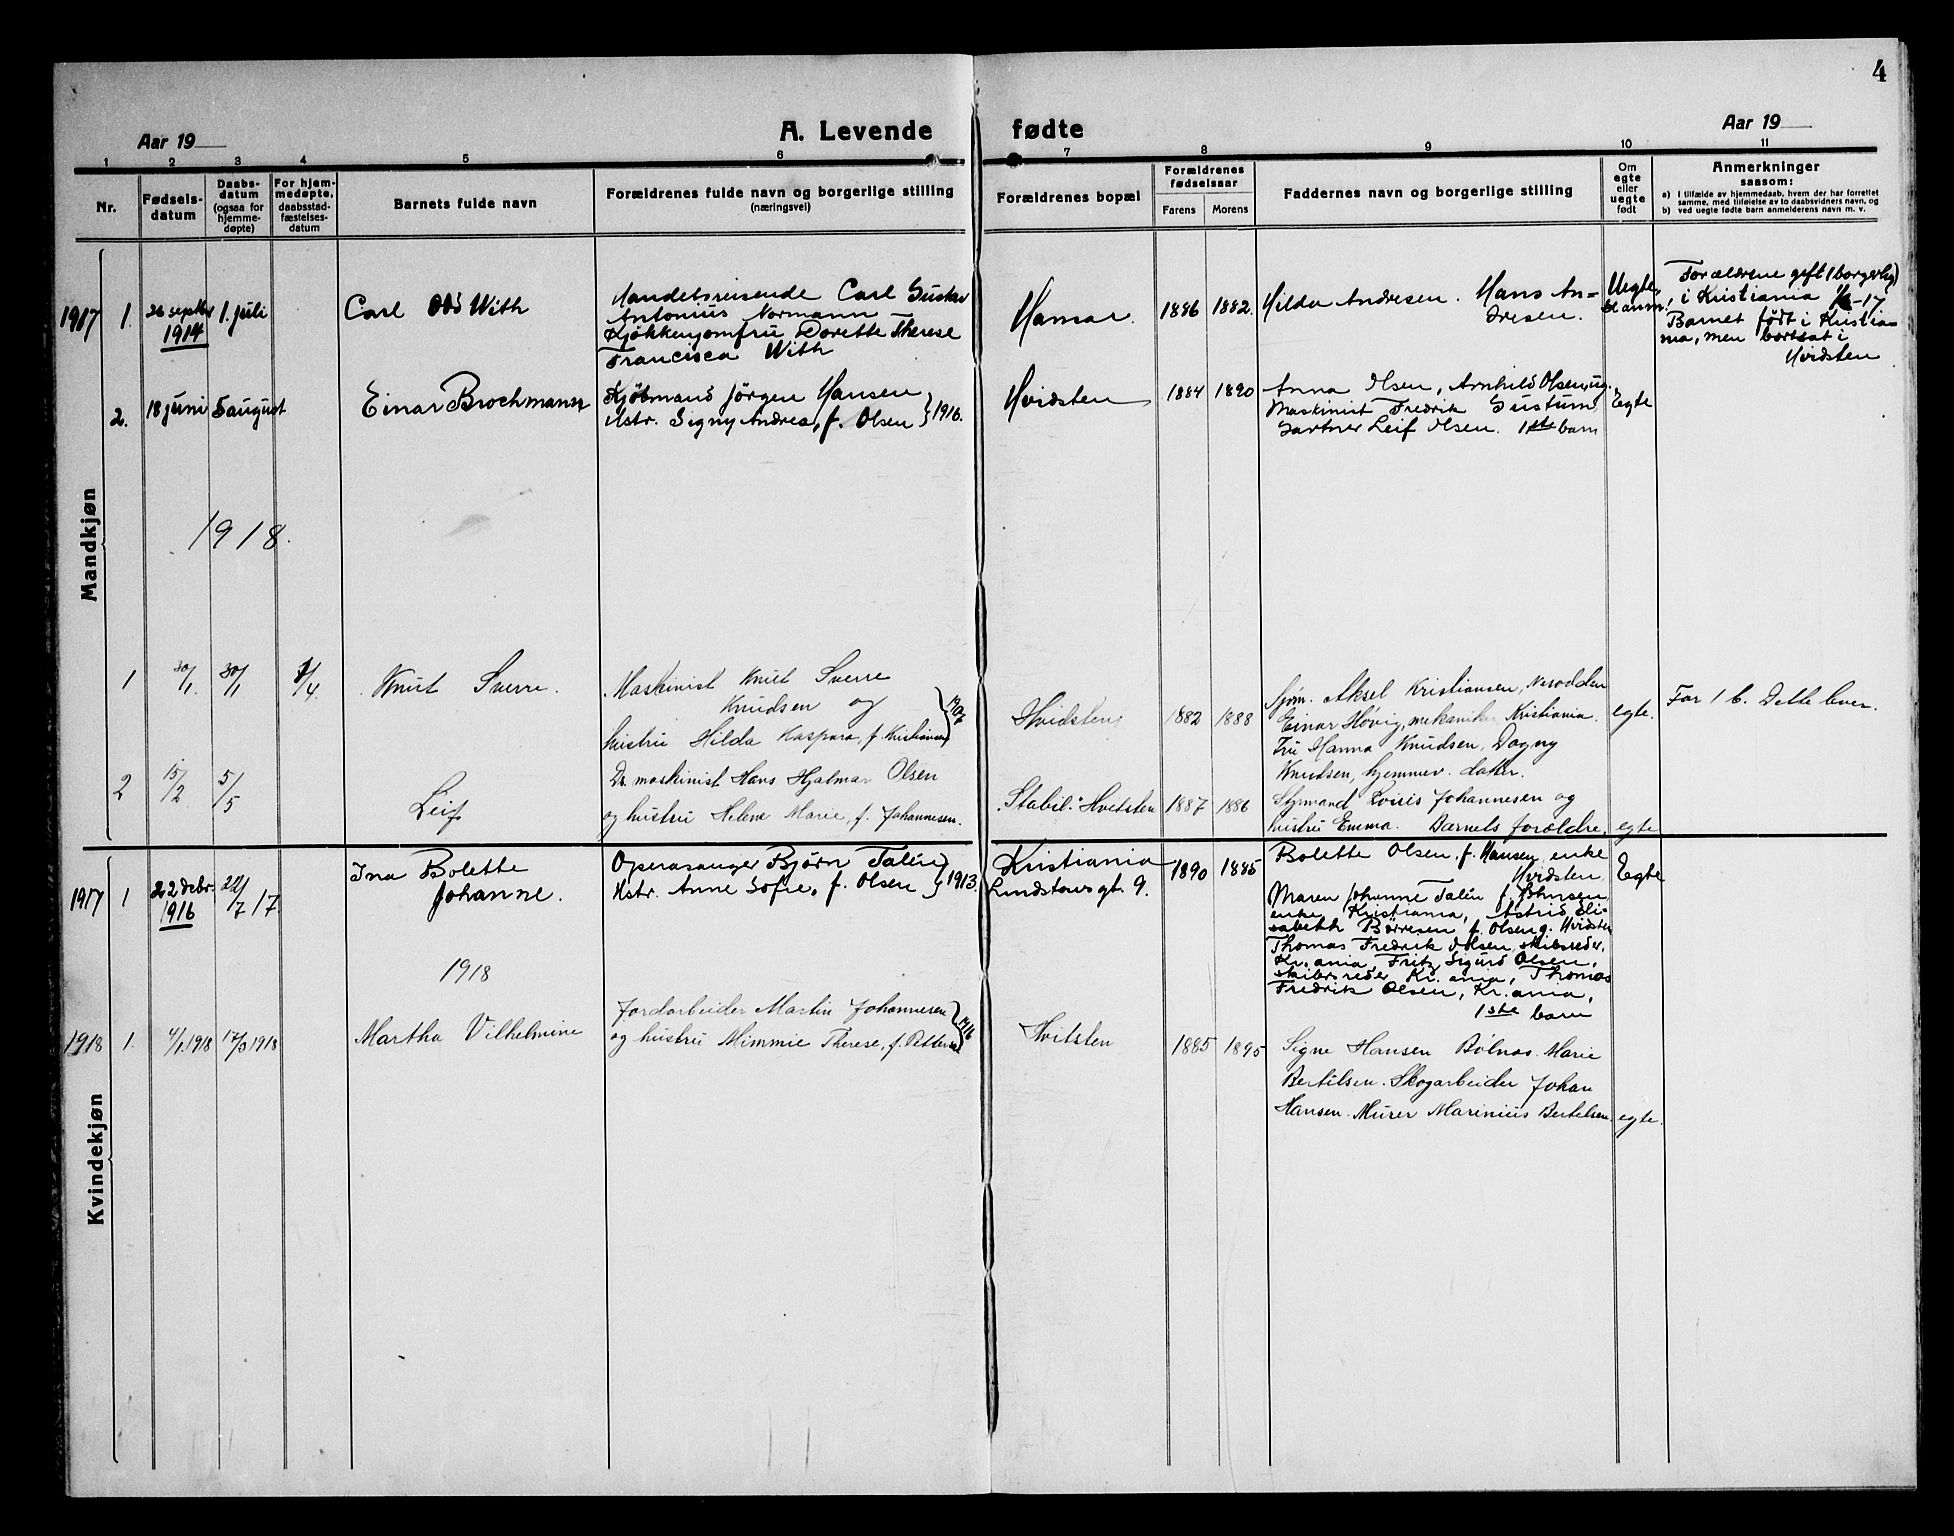 4
Aar 19
A. Levende fødte
Aar 19
1 2 3 4 5 6 7 8 9 10 11
Nr.
Fødsels-
datum
Daabs-
datum
(ogsaa for
hjemme-
døpte)
For hjem-
medøpte,
daabsstad-
fæstelses-
datum
Barnets fulde navn
Forældrenes fulde navn og borgerlige stilling
(næringsvei)
Forældrenes bopæl
Forældrenes
fødselsaar
Farens Morens
Faddernes navn og borgerlige stilling
Om
egte
eller
uegte
født
Anmerkninger
saasom:
a) i tilfælde av hjemmedaab, hvem der har forrettet
samme, med tilføielse av to daabsvidners navn, og
b) ved uegte fødte barn anmelderens navn m. v.
Mandkjøn
1917 1. 26 septbr
1914
1. juli
Carl Odd With
Handelsreisende Carl Gustav
Antonius Normann
Kjøkkenjomfru Dorette Therese
Francisca With
Hamar.
1886 1882.
Hilda Andresen. Hans An-
dresen.
Uegte,
Forældrene gift (borgerlig)
i Kristiania
Barnet født i Kristia-
nia, men bortsat i
Hvidsten
2. 18 juni 5 august
Einar Brochmann
Kjøbmand Jörgen Hansen
Hstr. Signy Andrea, f. Olsen } 1916.
Hvidsten
1884 1890
Anna Olsen, Arnhild Olsen, ug.
Maskinist Fredrik Gustum
Gartner Leif Olsen. 1ste barn
Egte
1918.
1 30/1. 30/1 1/4
Knut Sverre.
Maskinist Knut Sverre
Knudsen og
hustru Hilda Kaspara, f. Kristiansen } 1907
Hvidsten
1882 1888
Sjøm. Aksel Kristiansen, Nesodden
Einar Høvig, mekaniker, Kristiania.
Fru Hanna Knudsen, Dagny
Knudsen, hjemmev. datter.
egte.
Før 1 b. Dette lever.
2 15/2 5/5
Leif
Ds. maskinist Hans Hjalmar Olsen
og hustru Helene Marie, f. Johannesen.
"Stabil." Hvitsten
1887 1886
Styrmand Louis Johannesen og
hustru Emma. Barnets forældre.
egte
Kvindekjøn
1917 1 22 debr.
1916
22/7 17.
Ina Bolette
Johanne.
Operasanger Bjørn Talén
Hstr. Anne Sofie, f. Olsen } 1913.
Kristiania
Lindstows gt. 9.
1890 1885
Bolette Olsen, f. Hansen, enke
Hvidsten
Maren Johanne Talén f. Johnsen,
enke Kristiania, Astrid Eli-
sabeth Börresen f. Olsen g. Hvidsten
Thomas Fredrik Olsen, skibsreder,
Kr.ania, Fritz Sigurd Olsen,
skibsreder Kr.ania, Thomas
Fredrik Olsen, Kr.ania,
1ste barn
Egte
1918
1918 1. 4/1. 1918 17/3 1918
Martha Vilhelmine
Jordarbeider Martin Johannesen
og hustru Mimmie Therese, f. Pettersen } 1916
Hvitsten
1885 1895
Signe Hansen Bölnæs. Marie
Bertilsen. Skogarbeider Johan
Hansen. Murer Marinius Bertelsen.
egte.